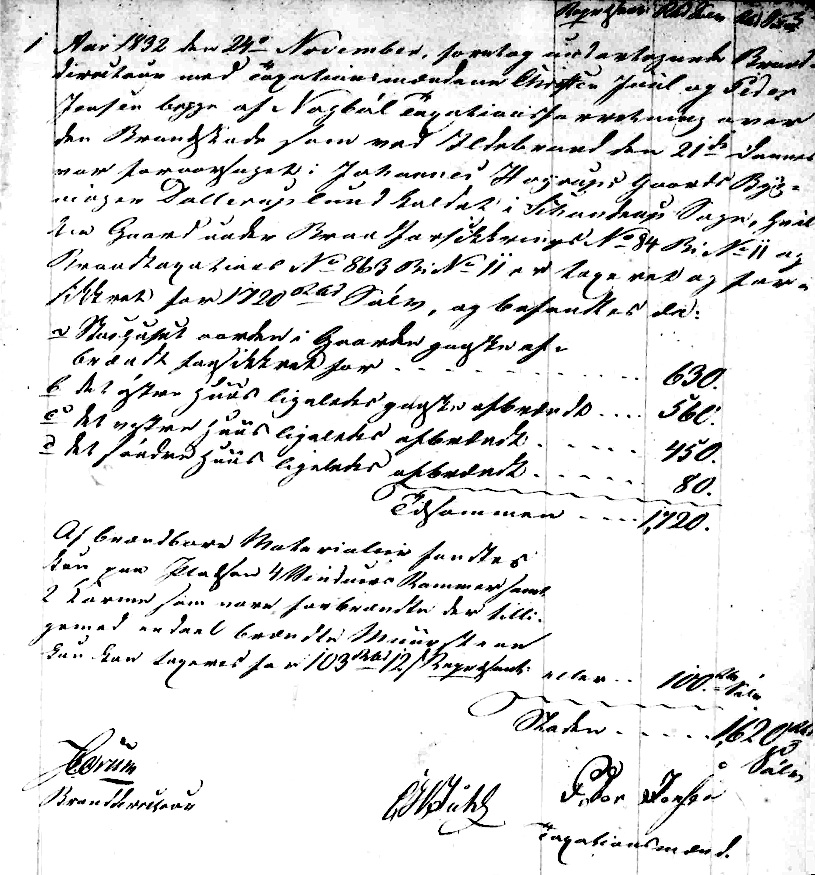 Repræsent. Rbd Sum Rbd Sølv
1 Aar 1832 den 24de November, foretog undertegnede Brand-
directeur med Taxationsmændene Christen Juul og Peder
Jensen begge af Nagbøl Taxationsforretning over
den Brandskade som ved Ildebrand den 21de dennes
var foraarsaget i Johannes Høyrups Gaards Byg-
ninger Dollerup lund kaldet i Skanderup Sogn, hvil
ken Gaard under Brandforsikkrings No 84 Bi No 11 og
Brandtaxations No 863 Bi No 11 er taxeret og for-
sikkret for 1720 rbd Sølv, og befandtes da:
a Stuehuset norden i Gaarden ganske af-
brændt forsikkret for 630.
b det østre Huus ligeledes ganske afbrændt 560.
c det vestre Huus ligeledes afbrændt 450.
d det søndre Huus ligeledes afbrændt 80.
Tilsammen 1,720.
Af brændbare Materialier fandtes
kun paa Pladsen 4 Vindues Rammer samt
2 Karme som vare forbrændte der tilli-
gemed endeel brændte Muursteen
kun kan taxeres for 103 rbd 12 s Repræsent. eller 100. rbd Sølv
Skaden 1,620 rbd Sølv
Branddirecteur
Peder Jensen
Taxationsmænd.